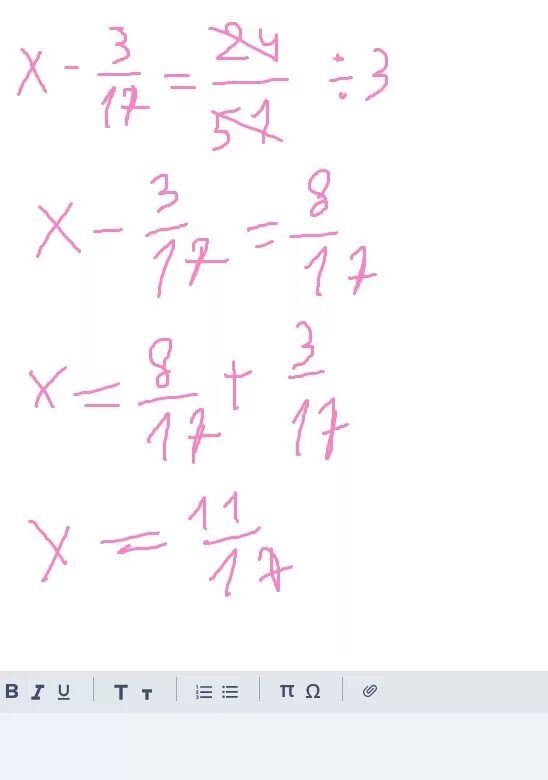 x - 3/17 = 24/51 ÷ 3
x - 3/17 = 8/17
x = 8/17 + 3/17
x = 11/17
B I U T T π Ω